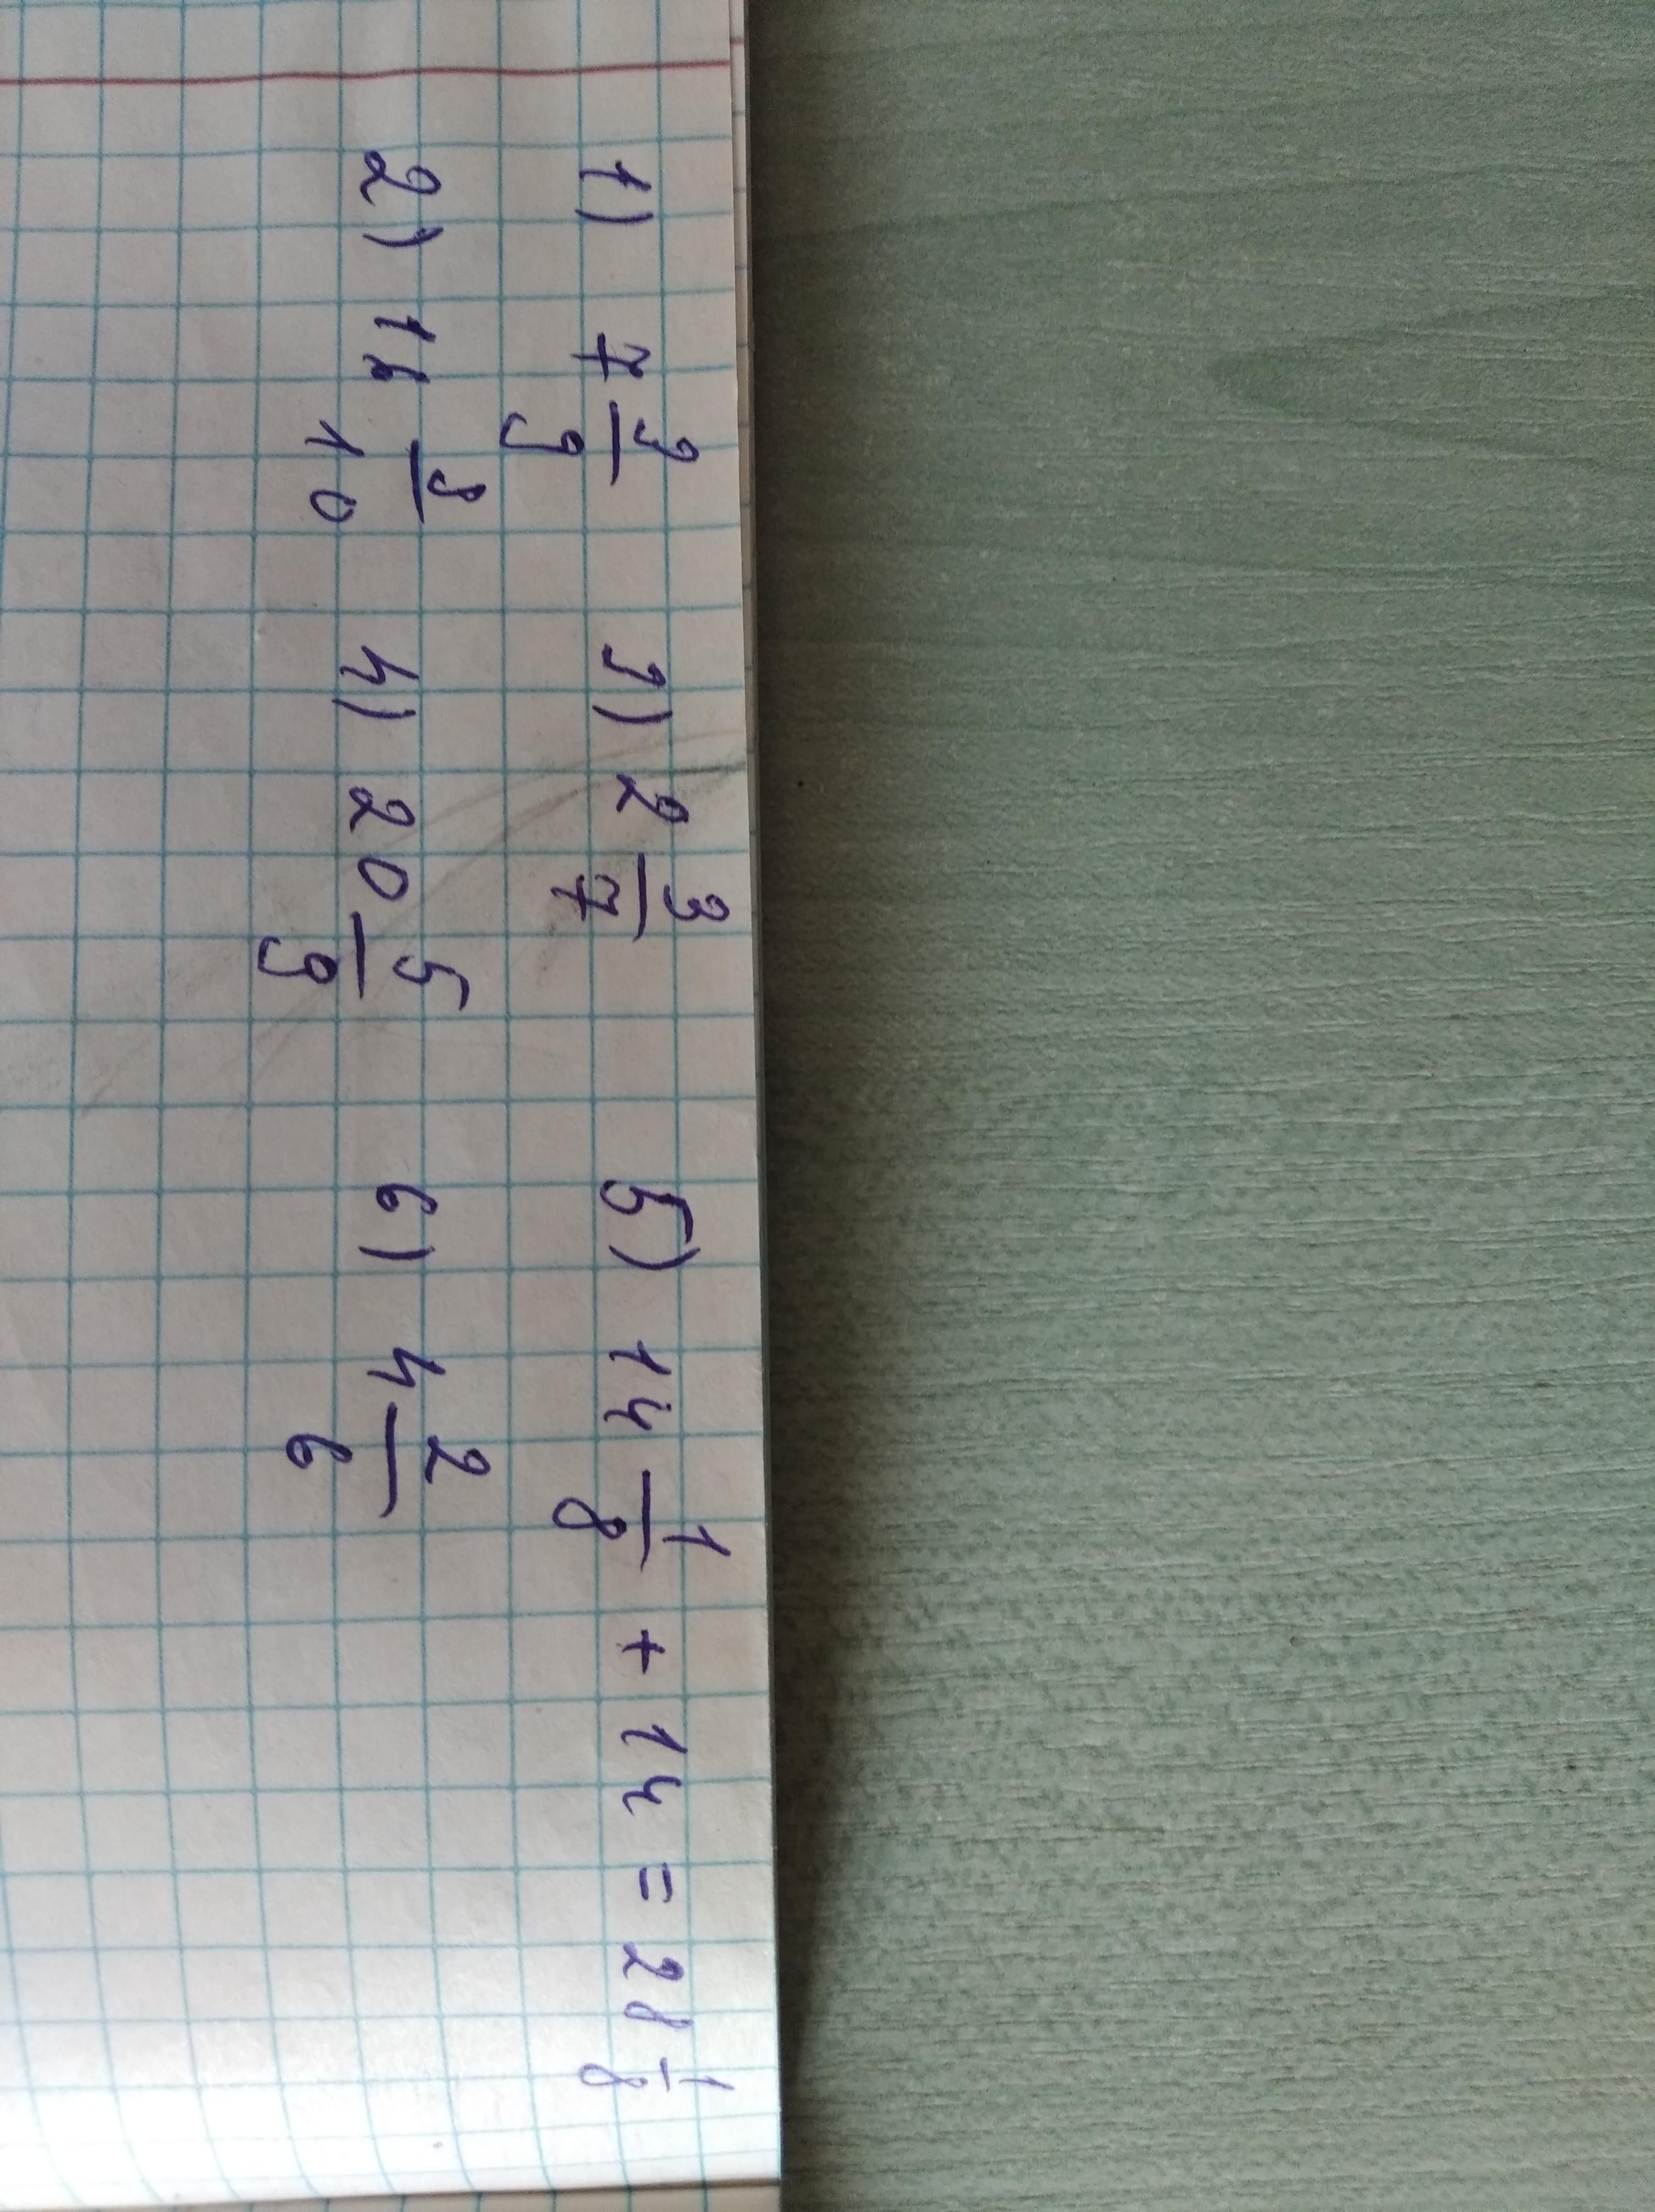 1) 7 3/9 3) 2 3/7 5) 14 1/8 + 14 = 28 1/8
2) 16 8/10 4) 20 5/9 6) 4 2/6